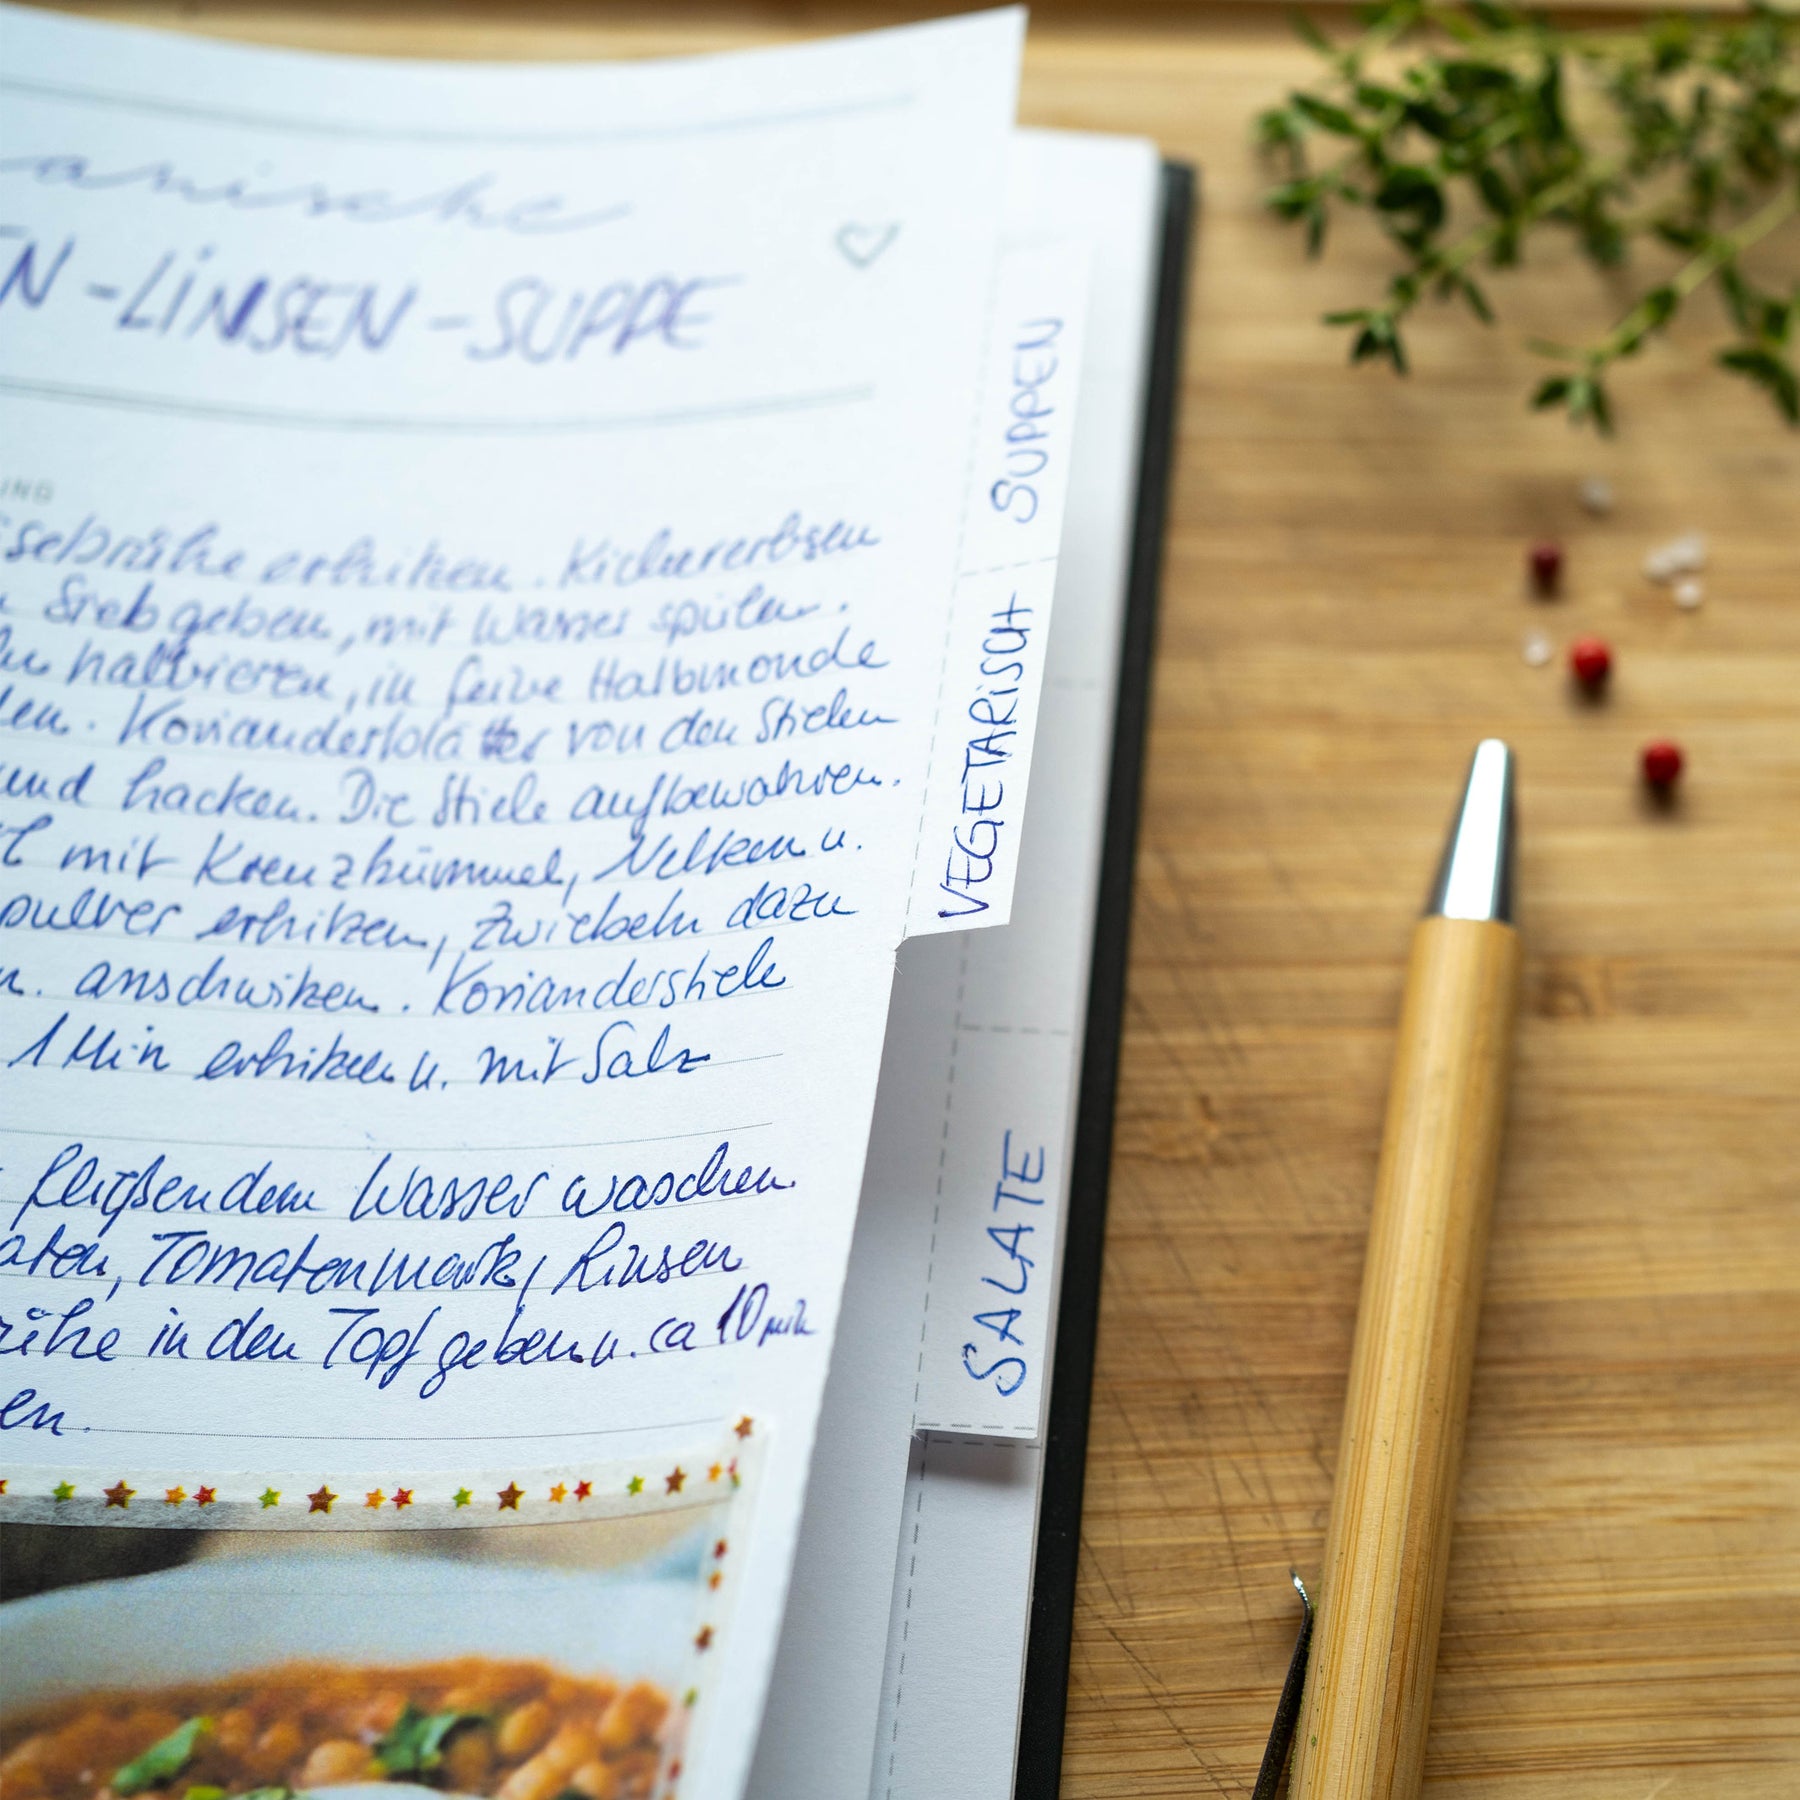 anische
EN-LINSEN-SUPPE
UNG
sebrühe erhitzen. Kichererbsen
Sieb geben, mit Wasser spülen.
halbieren, in feine Halbmonde
den. Korianderblätter von den Stielen
und hacken. Die Stiele aufbewahren.
mit Kreuzkümmel, Nelken u.
pulver erhitzen, Zwiebeln dazu
anschwitzen. Korianderstiele
1 Min erhitzen u. mit Salz
fließendem Wasser waschen.
aten, Tomatenmark, Linsen
rühe in den Topf geben u. ca 10 min
en.
SUPPEN
VEGETARiSCH
SALATE